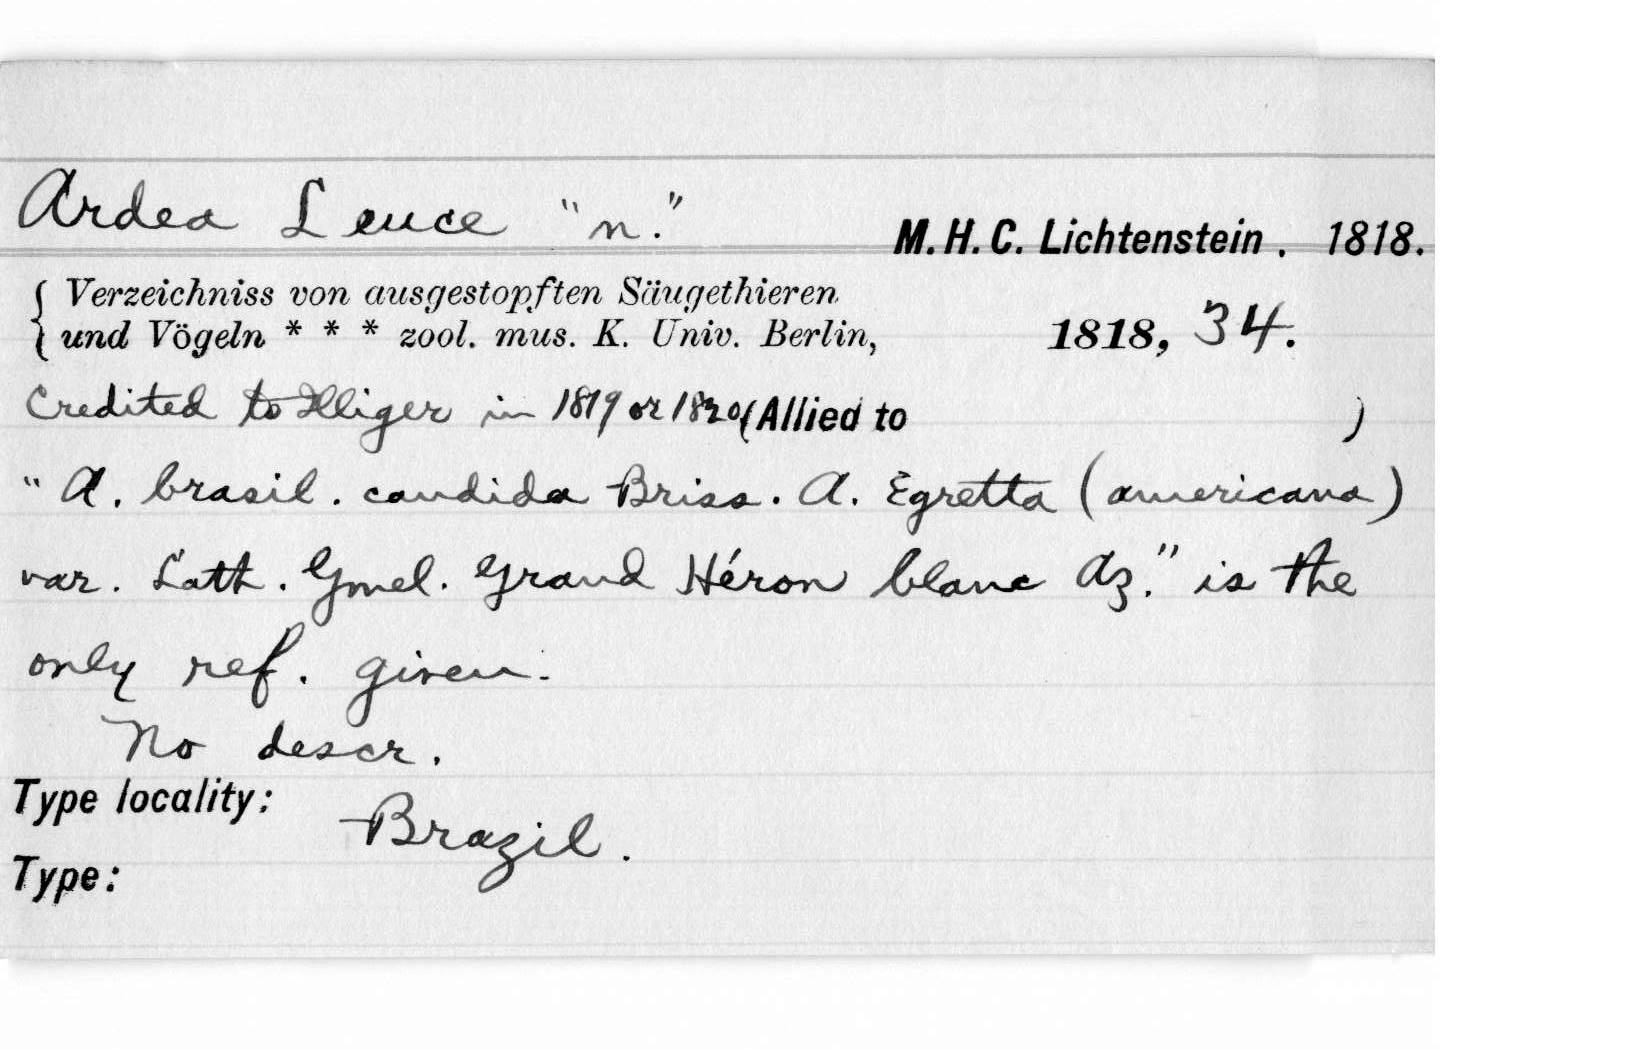 Ardea Leuce "n." M. H. C. Lichtenstein. 1818.
{ Verzeichniss von ausgestopften Säugethieren
{ und Vögeln * * * zool. mus. K. Univ. Berlin, 1818, 34.
Credited to Illiger in 1819 or 1820 (Allied to )
"A. brasil. candida Briss. A. Egretta (americana)
var. Lath. Gmel. Grand Héron blanc Az." is the
only ref. given.
No descr.
Type locality: Brazil.
Type: